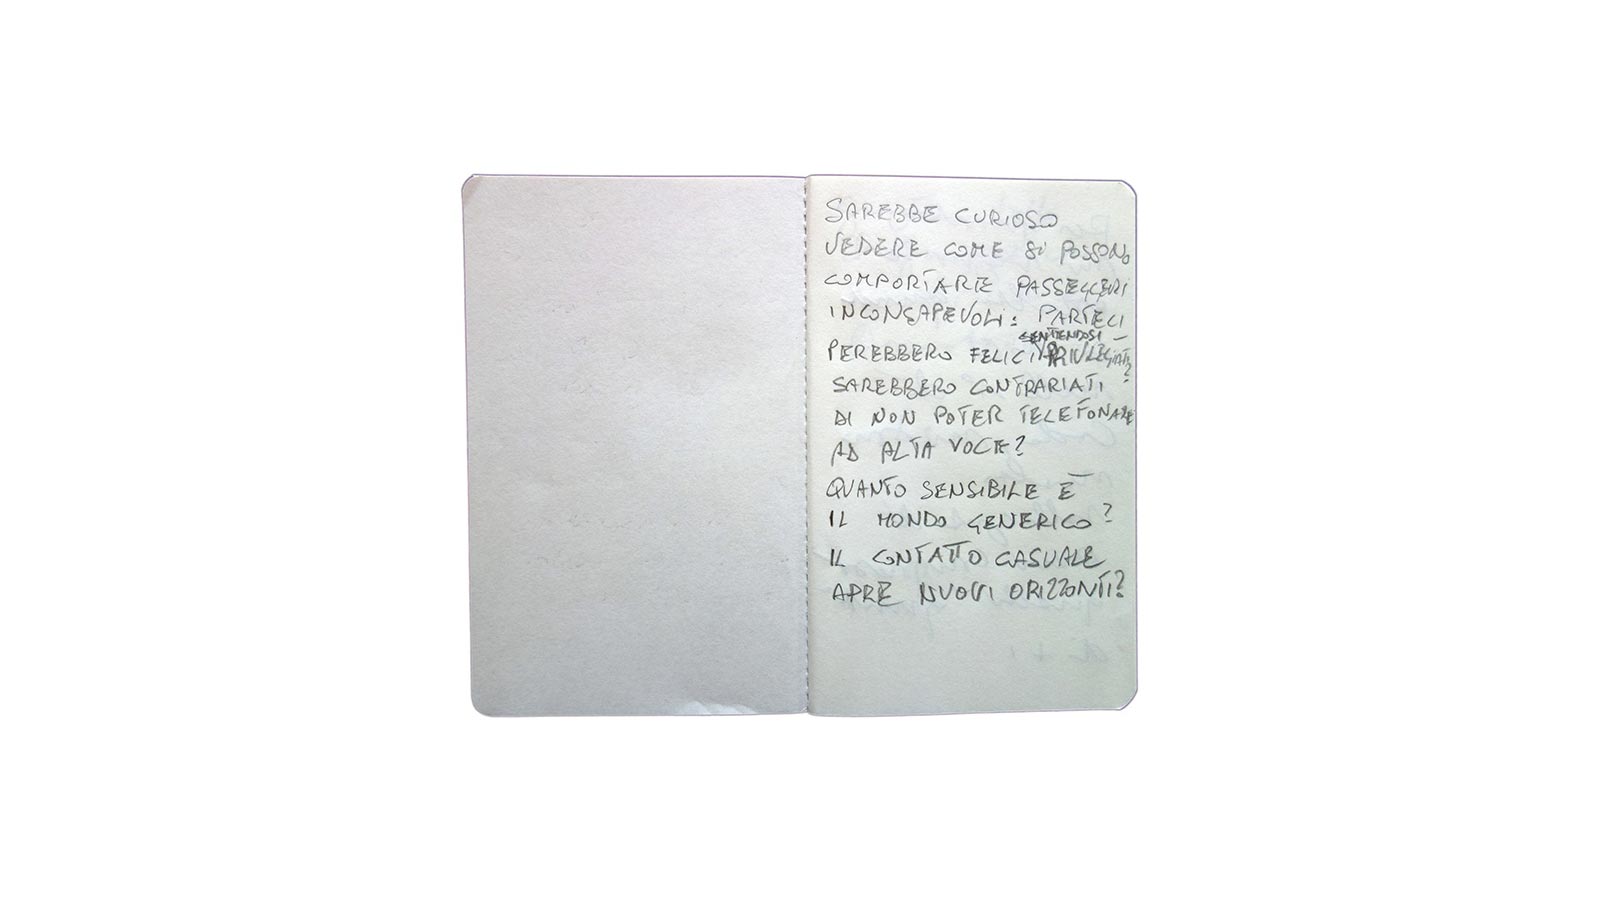 SAREBBE CURIOSO
VEDERE COME SI POSSONO
COMPORTARE PASSEGGERI
INCONSAPEVOLI: PARTECI
SENTENDOSI –
PEREBBERO FELICI PRIVILEGIATI?
SAREBBERO CONTRARIATI
DI NON POTER TELEFONARE
AD ALTA VOCE?
QUANTO SENSIBILE È
IL MONDO GENERICO?
IL CONTATTO CASUALE
APRE NUOVI ORIZZONTI?